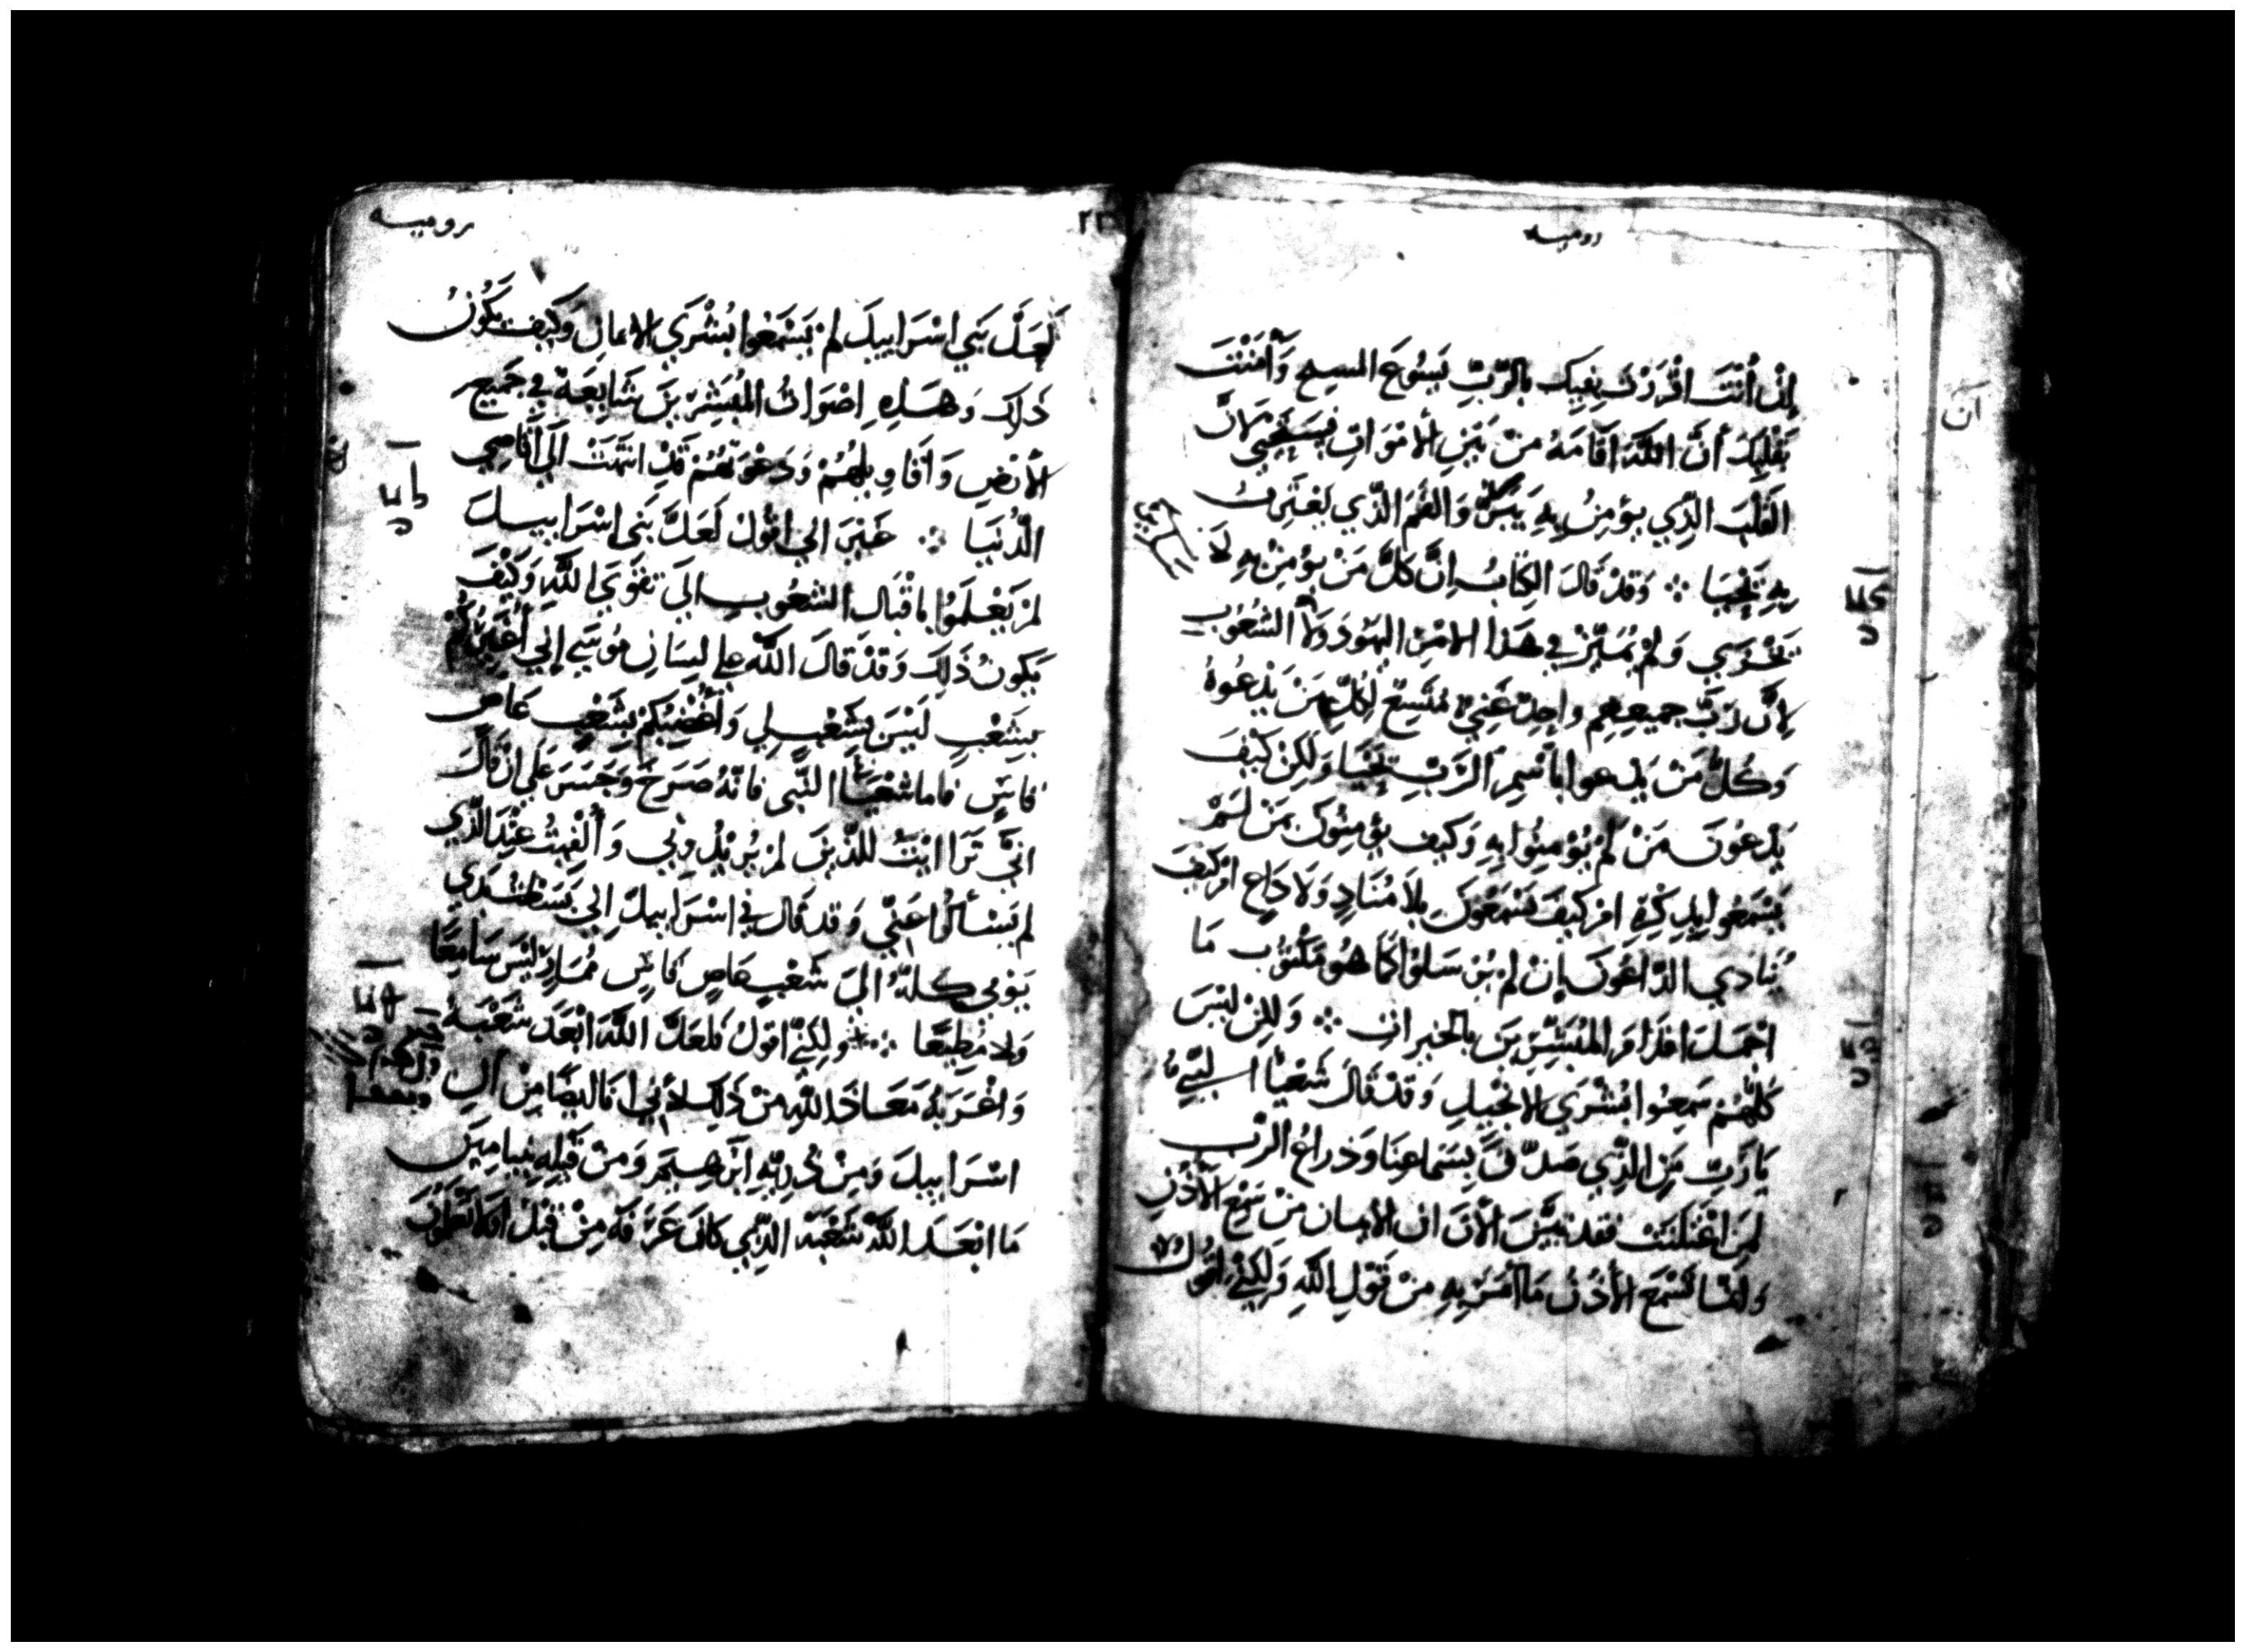 روميه
إِنْ أَنْتَ اقْرَرْتَ بِفِيكَ بالرَّبِّ يَسُوعَ المسيح وَآمَنْتَ
بَقْلبِكَ أنَّ اللَّهَ اَقَامَهُ مِنْ بَيْنِ الأَمْوَاتِ فَسَتَحْيَى لأَنَّ
القَلْبَ الذِّي يؤمِنُ بِهِ يَتَبَرَّرُ وَالفَمَ الذِّي يَعْتَرِفُ
بِهِ يَحْيَا ۞ وَقَدْ قَالَ الكِتَابُ اِنَّ كلَّ مَنْ يؤمِنْ بِهِ لَا
يَخْزَي وَلَمْ يُمَيِّزْ فِي هَذا الامْرِ اليهُودَ وَلَا الشُعُوبِ
لِانَّ رَبَّ جميعِهِم واحِدٌ غَنِيٌ مُتَّسِعٌ لِكُلِّ مَنْ يَدْعُوهُ
وَكُلُّ مَنْ يدعوا بِاسْمِ الرَّبِّ يَحْيَا وَلَكِنْ كَيْفَ
يَدْعُونَ مَنْ لَمْ يُوْمِنُوا بِهِ وَكَيف يؤمِنُونَ بمَنْ لَمْ
يَسْمَعُوا بِذِكْرِهِ امْ كَيْفَ يَسْمَعُونَ بِلَا مُنَادٍ وَلَا دَاعٍ امْ كَيْفَ
يُنادي الدَّاعُونَ إِنْ لَمْ يُرْسَلُوْا كَمَا هُو مَكْتُوْب مَا
اجْمَلَ اقْدَامَ المُبَشِّرِيَن بالخيراتِ ۞ وَلكِنْ لَيْسَ
كُلُّهُمْ سَمِعُوا بُشْرَي الانْجِيلِ وَقَدْ قَالَ شَعْيَا النَّبِي
يَا رَبِّ مَنِ الذِّي صَدَّقَ بِسَمَاعِنَا وَذراعُ الرَّب
لِمَنِ اعْتَلَنَتْ فَقد تَبَيَّنَ الْآنَ ان الايمان مِنْ سَمْعِ الْأُذُنِ
وَانمَا تَسْمَعَ الأُذُنُ مَا أُمِرَ بِهِ مِنْ قَوْلِ اللَّهِ وَلَكِنِّي اقُولُ
روميه
لَعَلَّ بَنِي اسْرَاييلَ لَمْ يَسْمَعُوا بُشْرَي الايمانِ وَكَيف يَكُونُ
ذَلِكَ وَهَذِهِ اصْوَاتُ المُبَشِّرِيَن شَايعَة فِي جَميعِ
الأَرْضِ وَأقَاوِيلُهُمْ وَدَعْوَتُهُمْ قَدِ انتَهَتْ الَي اقَاصِي
الدُنْيَا ۞ غَيْرَ انِي اقُولُ لَعَلَّ بَنِي اسْرَاييلَ
لَمْ يَعْلَمُوْا بِاقْبَال الشعُوب الَي تقوَي اللَّه وَكَيْفَ
يَكُونُ ذَلِكَ وَقَدْ قالَ اللَّه علي لِسَانِ مُوسَي إِنِي أُغيرُكُمْ
بِشَعْبٍ لَيْسَ بِشَعْبٍ لِي وَأُغْضِبُكُمْ بِشَعْبٍ عَاصٍ
قاسٍ فاما شعْيَا النَّبي فَانَّهُ صَرَحَ وَجَسَرَ عَلَي انْ قَالَ
انِّي تَرَاايْتُ للذِّينَ لَمْ يُرِيْدُونِي وَأُلْفِيتُ عِنْدَ الذِّي
لم يَسْأَلُوا عَنِّي وَقد قَال فِي اسْرَاييلَ انِي بَسَطْتُ يَدِي
يَوْمِي كلّهُ الَى شَعْبٍ عَاصٍ قَاسٍ مُمَارٍ لَيْسَ سَامِعًا
وَلا مُطِيعًا ۞ ولكِنِّي اقولُ فَلَعَلَّ اللَّهَ ابْعَدَ شَعْبَهُ
وَاغْرَبَهُ مَعَاذ اللَّهِ مِنْ ذَلِكَ لأَنِي انَا ايضًا مِنْ الِ
اسْرَاييلَ وَمِنْ ذُرِيَّةِ ابْرَهِيمَ وَمِنْ قَبيلِه بنيامِيَن
مَا ابْعَدَ اللَّهُ شَعْبَهُ الذِّي كَانَ عَرَفَهُ مِنْ قَبْلُ اوَلَا تَعْلَمُوْنَ